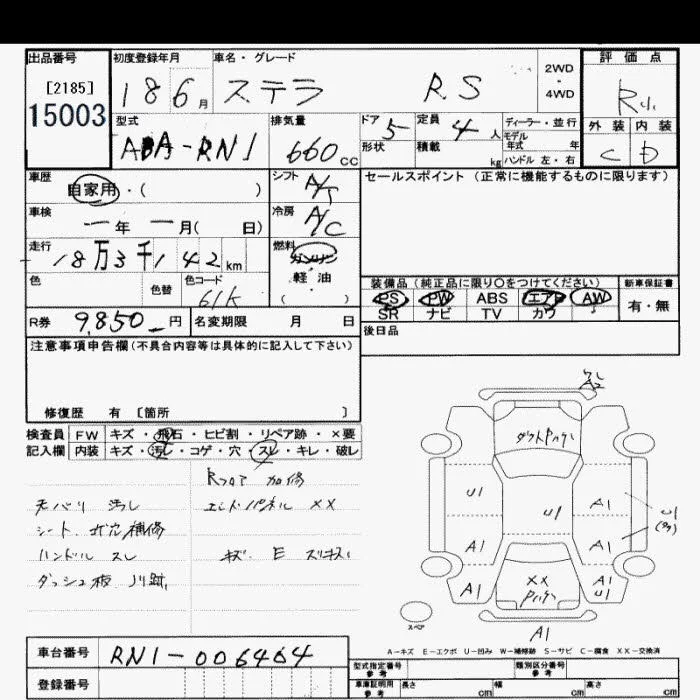 出品番号
[2185]
15003
初度登録年月
18 6月
車名・グレード
ステラ RS
2WD
・
4WD
評価点
外装 内装
C D
型式
ABA-RN1
排気量
660cc
ドア 5
形状
定員 4人
積載 kg
ディーラー・並行
モデル
年式 年
ハンドル 左・右
車歴
自家用・( )
シフト A/T
セールスポイント (正常に機能するものに限ります)
車検
一年 一月( 日)
冷房 A/C
走行
18万3千142km
燃料
ガソリン
軽油
( )
色
色替
色コード
61K
装備品(純正品に限り〇をつけてください)
PS PW ABS エアB AW
SR ナビ TV カワ
新車保証書
有・無
R券 9,850円
名変期限 月 日
後日品
注意事項申告欄(不具合内容等は具体的に記入して下さい)
修復歴 有 [箇所 ]
検査員 FW キズ・飛石・ヒビ割・リペア跡・×要
記入欄 内装 キズ・汚レ・コゲ・穴・スレ・キレ・破レ
Rフロア 加修
天バリ 汚レ
エンドパネル ××
シート 汚穴補修
ハンドル スレ
キズ E スリキズ
ダッシュ板 ノリ跡
A2
U1
U1
A1
A1
A1
A1
A1
U1
U1
××
A1
スペア
A-キズ E-エクボ U-凹み W-補修跡 S-サビ C-腐食 XX-交換済
車台番号 RN1-006464
登録番号
型式指定番号
参考
類別区分番号
参考
車庫証明用
参考
長さ cm 幅 cm 高さ cm